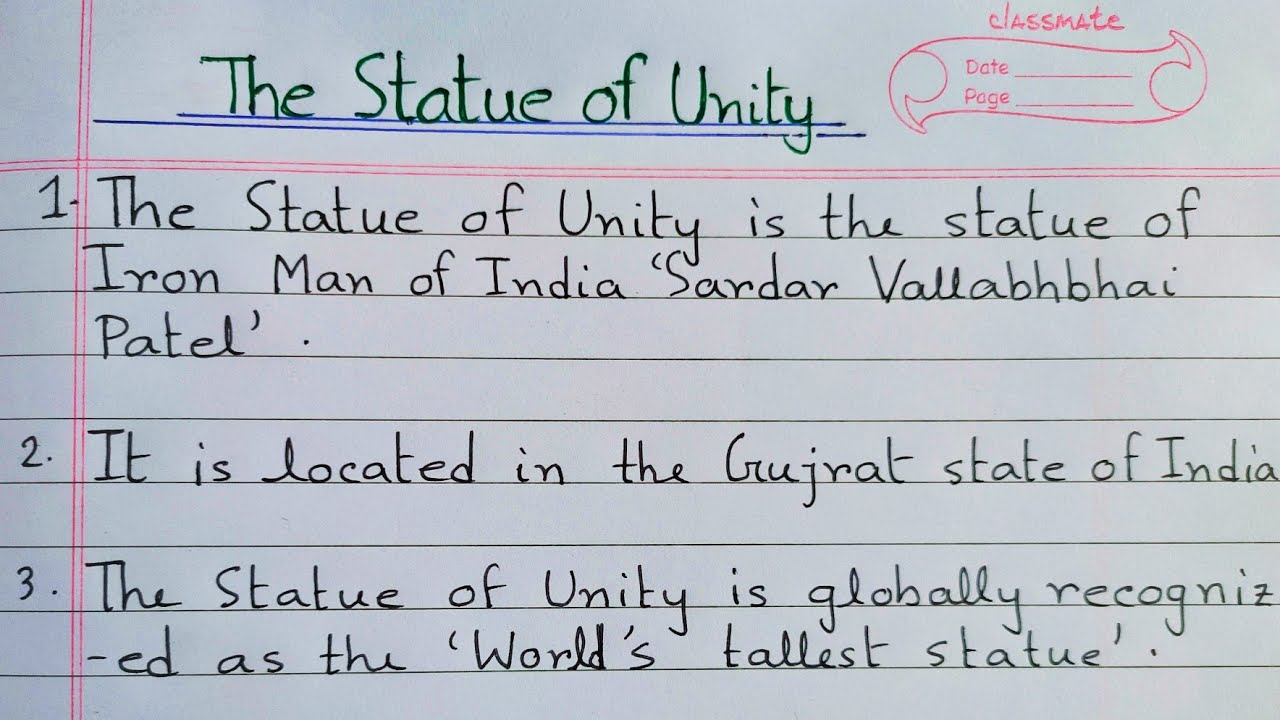 classmate
Date
Page
The Statue of Unity
1. The Statue of Unity is the statue of
Iron Man of India 'Sardar Vallabhbhai
Patel'.
2. It is located in the Gujrat state of India
3. The Statue of Unity is globally recogniz
-ed as the 'World's tallest statue'.